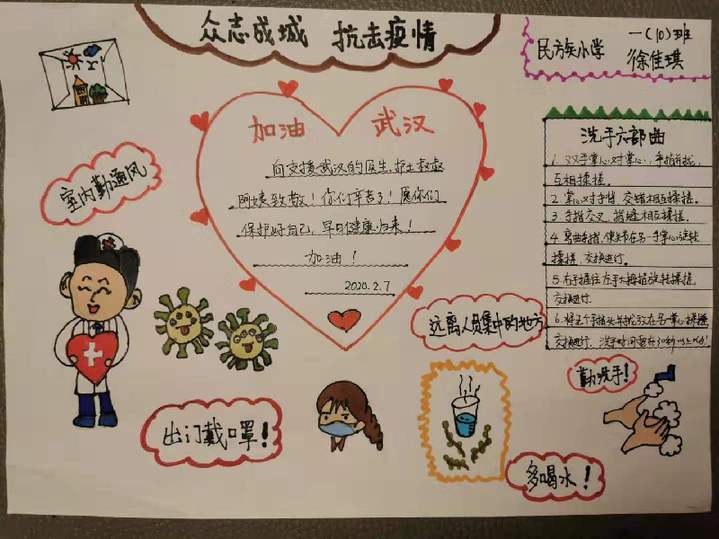 众志成城 抗击疫情
民族小学
一(10)班
徐佳琪
加油 武汉
向支援武汉的医生,护士叔叔
阿姨致敬!你们辛苦了!愿你们
保护好自己,早日健康归来!
加油!
2020.2.7
室内勤通风
洗手六部曲
1.双手掌心对掌心,手指并拢,
互相揉搓.
2.掌心对手背,交错相互揉搓.
3.手指交叉,指缝相互揉搓.
4.弯曲手指,使关节在另一手掌心旋转
揉搓,交换进行.
5.右手握住左手大拇指旋转揉搓,
交换进行.
6.将五个手指尖并拢放在另一掌心揉搓
交换进行.洗手时间要在
远离人员集中的地方
勤洗手!
出门戴口罩!
多喝水!